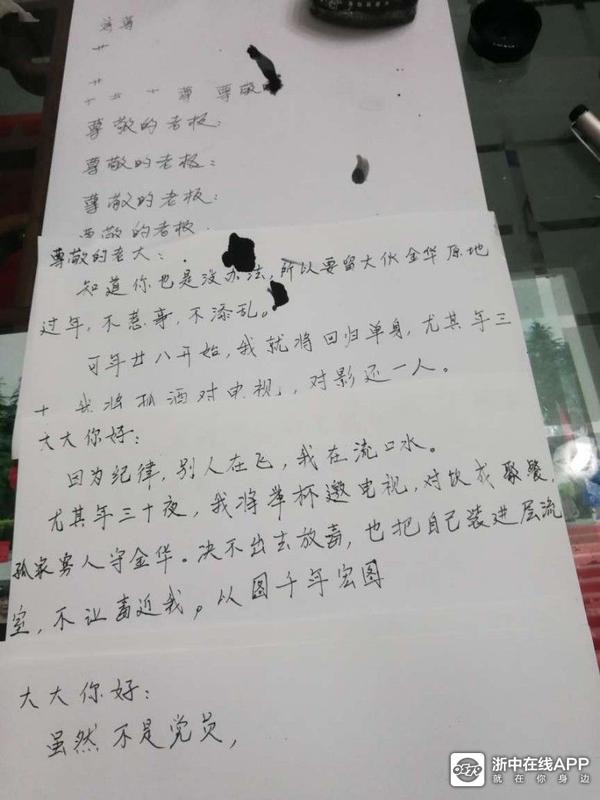 尊尊
艹
艹
十 十 尊 尊敬的
尊敬的老板:
尊敬的老板:
尊敬的老板:
尊敬的老板:
尊敬的老大:
知道你也是没办法,所以要留大伙金华原地
过年,不惹事,不添乱。
可年廿八开始,我就将回归单身,尤其年三
十 我将 酒对电视,对影还一人。
大大你好:
因为纪律,别人在飞,我在流口水。
尤其年三十夜,我将举杯邀电视,对饮成聚餐,
孤家寡人守金华。决不出去放毒,也把自己装进层流
室,不让毒近我,以图千年宏图
大大你好:
虽然不是党员,
浙中在线APP
就在你身边